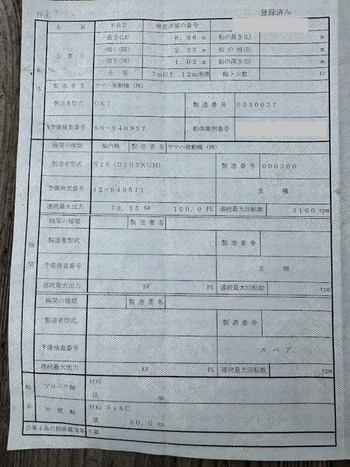 登録済み
FRP 検査済票の番号
長さ(LR) 6.86 m 船の長さ(L) m
幅(BR) 2.25 m 船の幅(B) m
深さ(DR) 1.02 m 船の深さ(D) m
全長 7m以上 12m未満 総トン数
製造者名 ヤマハ発動機(株)
製造者型式 製造番号 0530037
予備検査番号 60-940957 船体識別番号
機関の種類 船内機 製造者名 ヤマハ発動機(株)
製造者型式 N26 (D202KUH) 製造番号 000300
予備検査番号 42-943571 主機
連続最大出力 73.55 kW 100.0 PS 連続最大回転数 3100 rpm
機関の種類 製造者名
製造者型式 製造番号
予備検査番号 主機
連続最大出力 kW PS 連続最大回転数 rpm
機関の種類 製造者名
製造者型式 製造番号
予備検査番号 スペア
連続最大出力 kW PS 連続最大回転数 rpm
プロペラ軸 材料
径 mm
中間軸 材料 S45C
径 30.0 mm